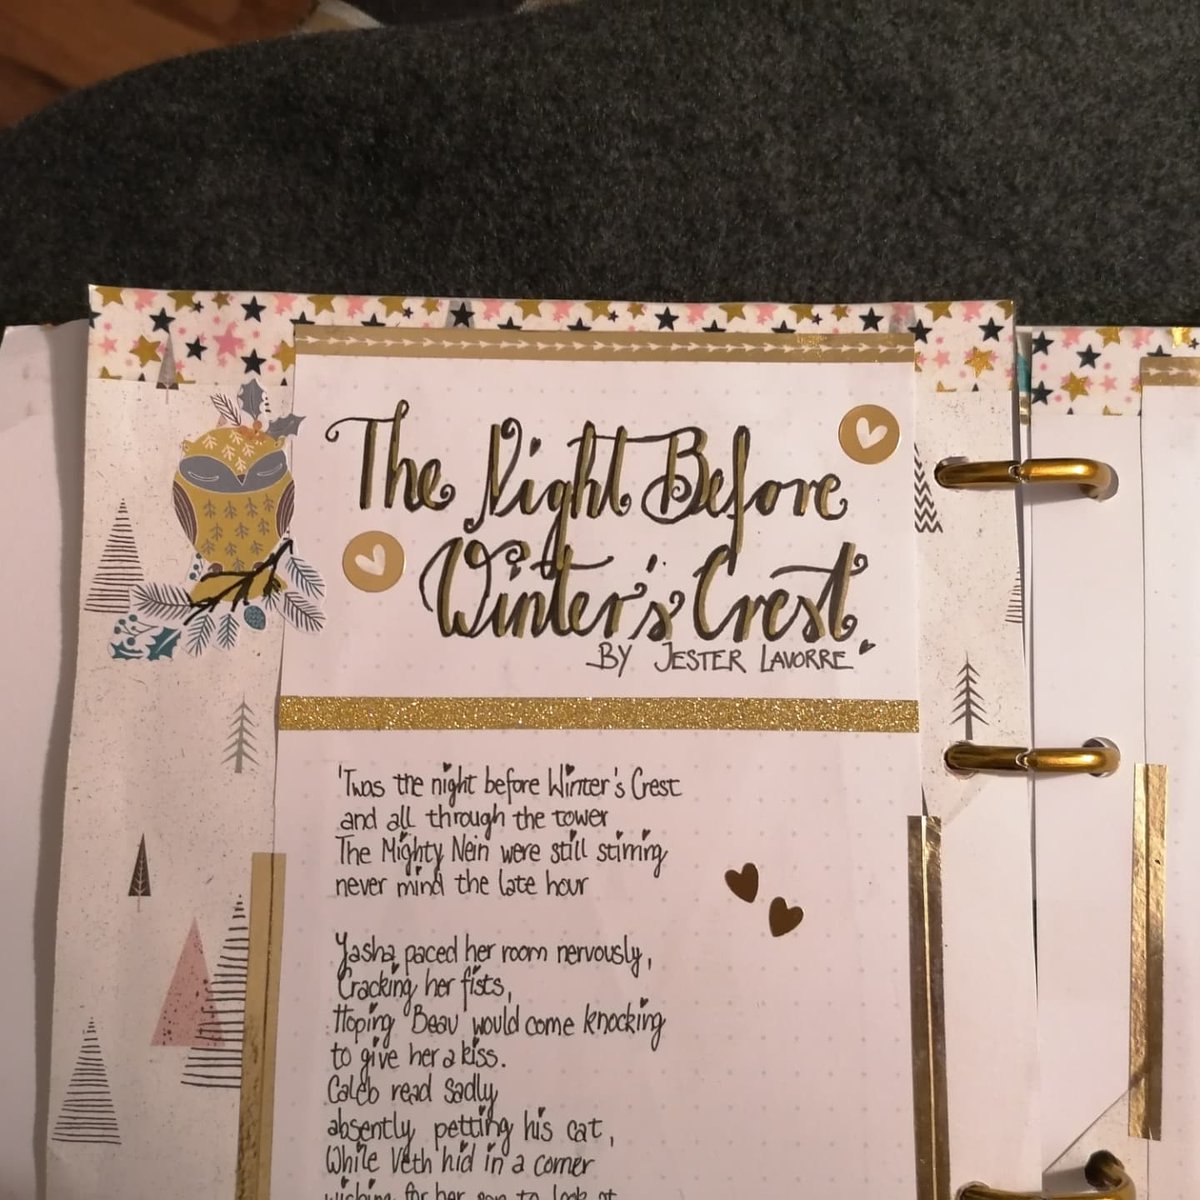 The Night Before
Winter's Crest
BY JESTER LAVORRE
'Twas the night before Winter's Crest
and all through the tower
The Mighty Nein were still stirring
never mind the late hour
Yasha paced her room nervously,
Cracking her fists,
Hoping Beau would come knocking
to give her a kiss.
Caleb read sadly
absently petting his cat,
While Veth hid in a corner
wishing for her son to look at